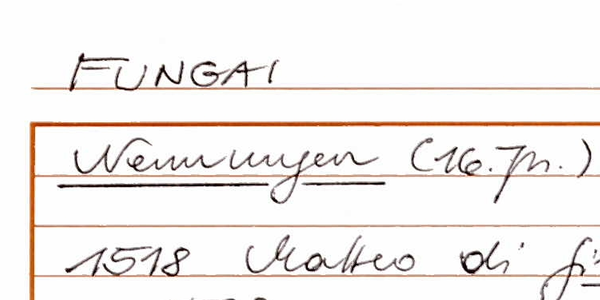 FUNGAI
Nennungen (16. Jh.)
1518 Matteo di